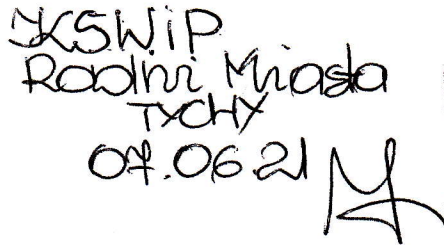 IKSWiP
Radni Miasta
TYCHY
07.06.21